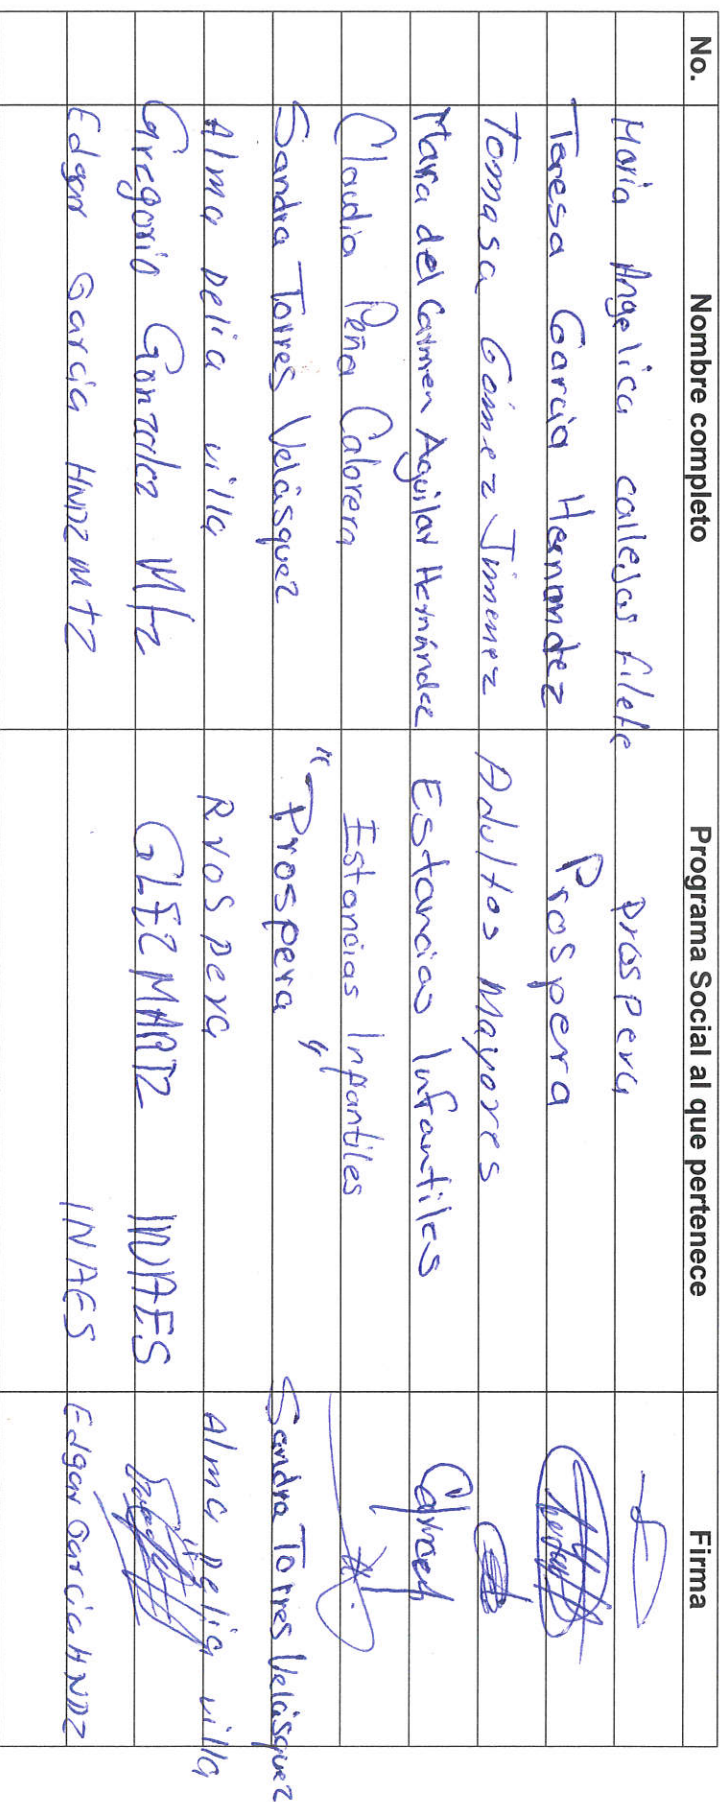 No. Nombre completo Programa Social al que pertenece Firma
Maria Angelica callejas filete prospera
Teresa Garcia Hernandez Prospera
Tomasa Gómez Jimenez Adultos Mayores
Maria del Carmen Aguilar Hernández Estancias Infantiles Carmen
Claudia Peña Cabrera Estancias Infantiles
Sandra Torres Velásquez "Prospera" Sandra Torres Velásquez
Alma Delia villa Prospera Alma Delia villa
Gregorio Gonzalez Mtz GLEZ MARTZ INAES
Edgar Garcia HNDZ MTZ INAES Edgar Garcia HNDZ